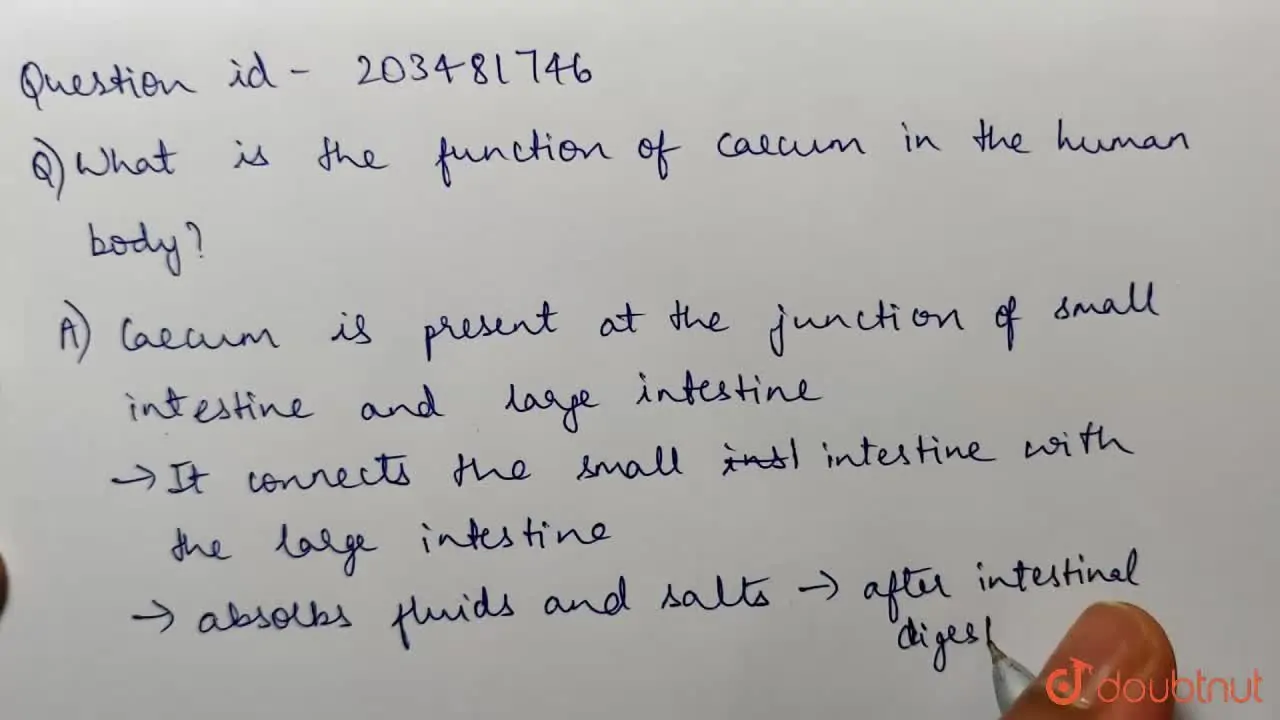 Question id - 203481746
Q) What is the function of caecum in the human
body?
A) Caecum is present at the junction of small
intestine and large intestine
→ It connects the small intestine with
the large intestine
→ absorbs fluids and salts → after intestinal
digest
doubtnut